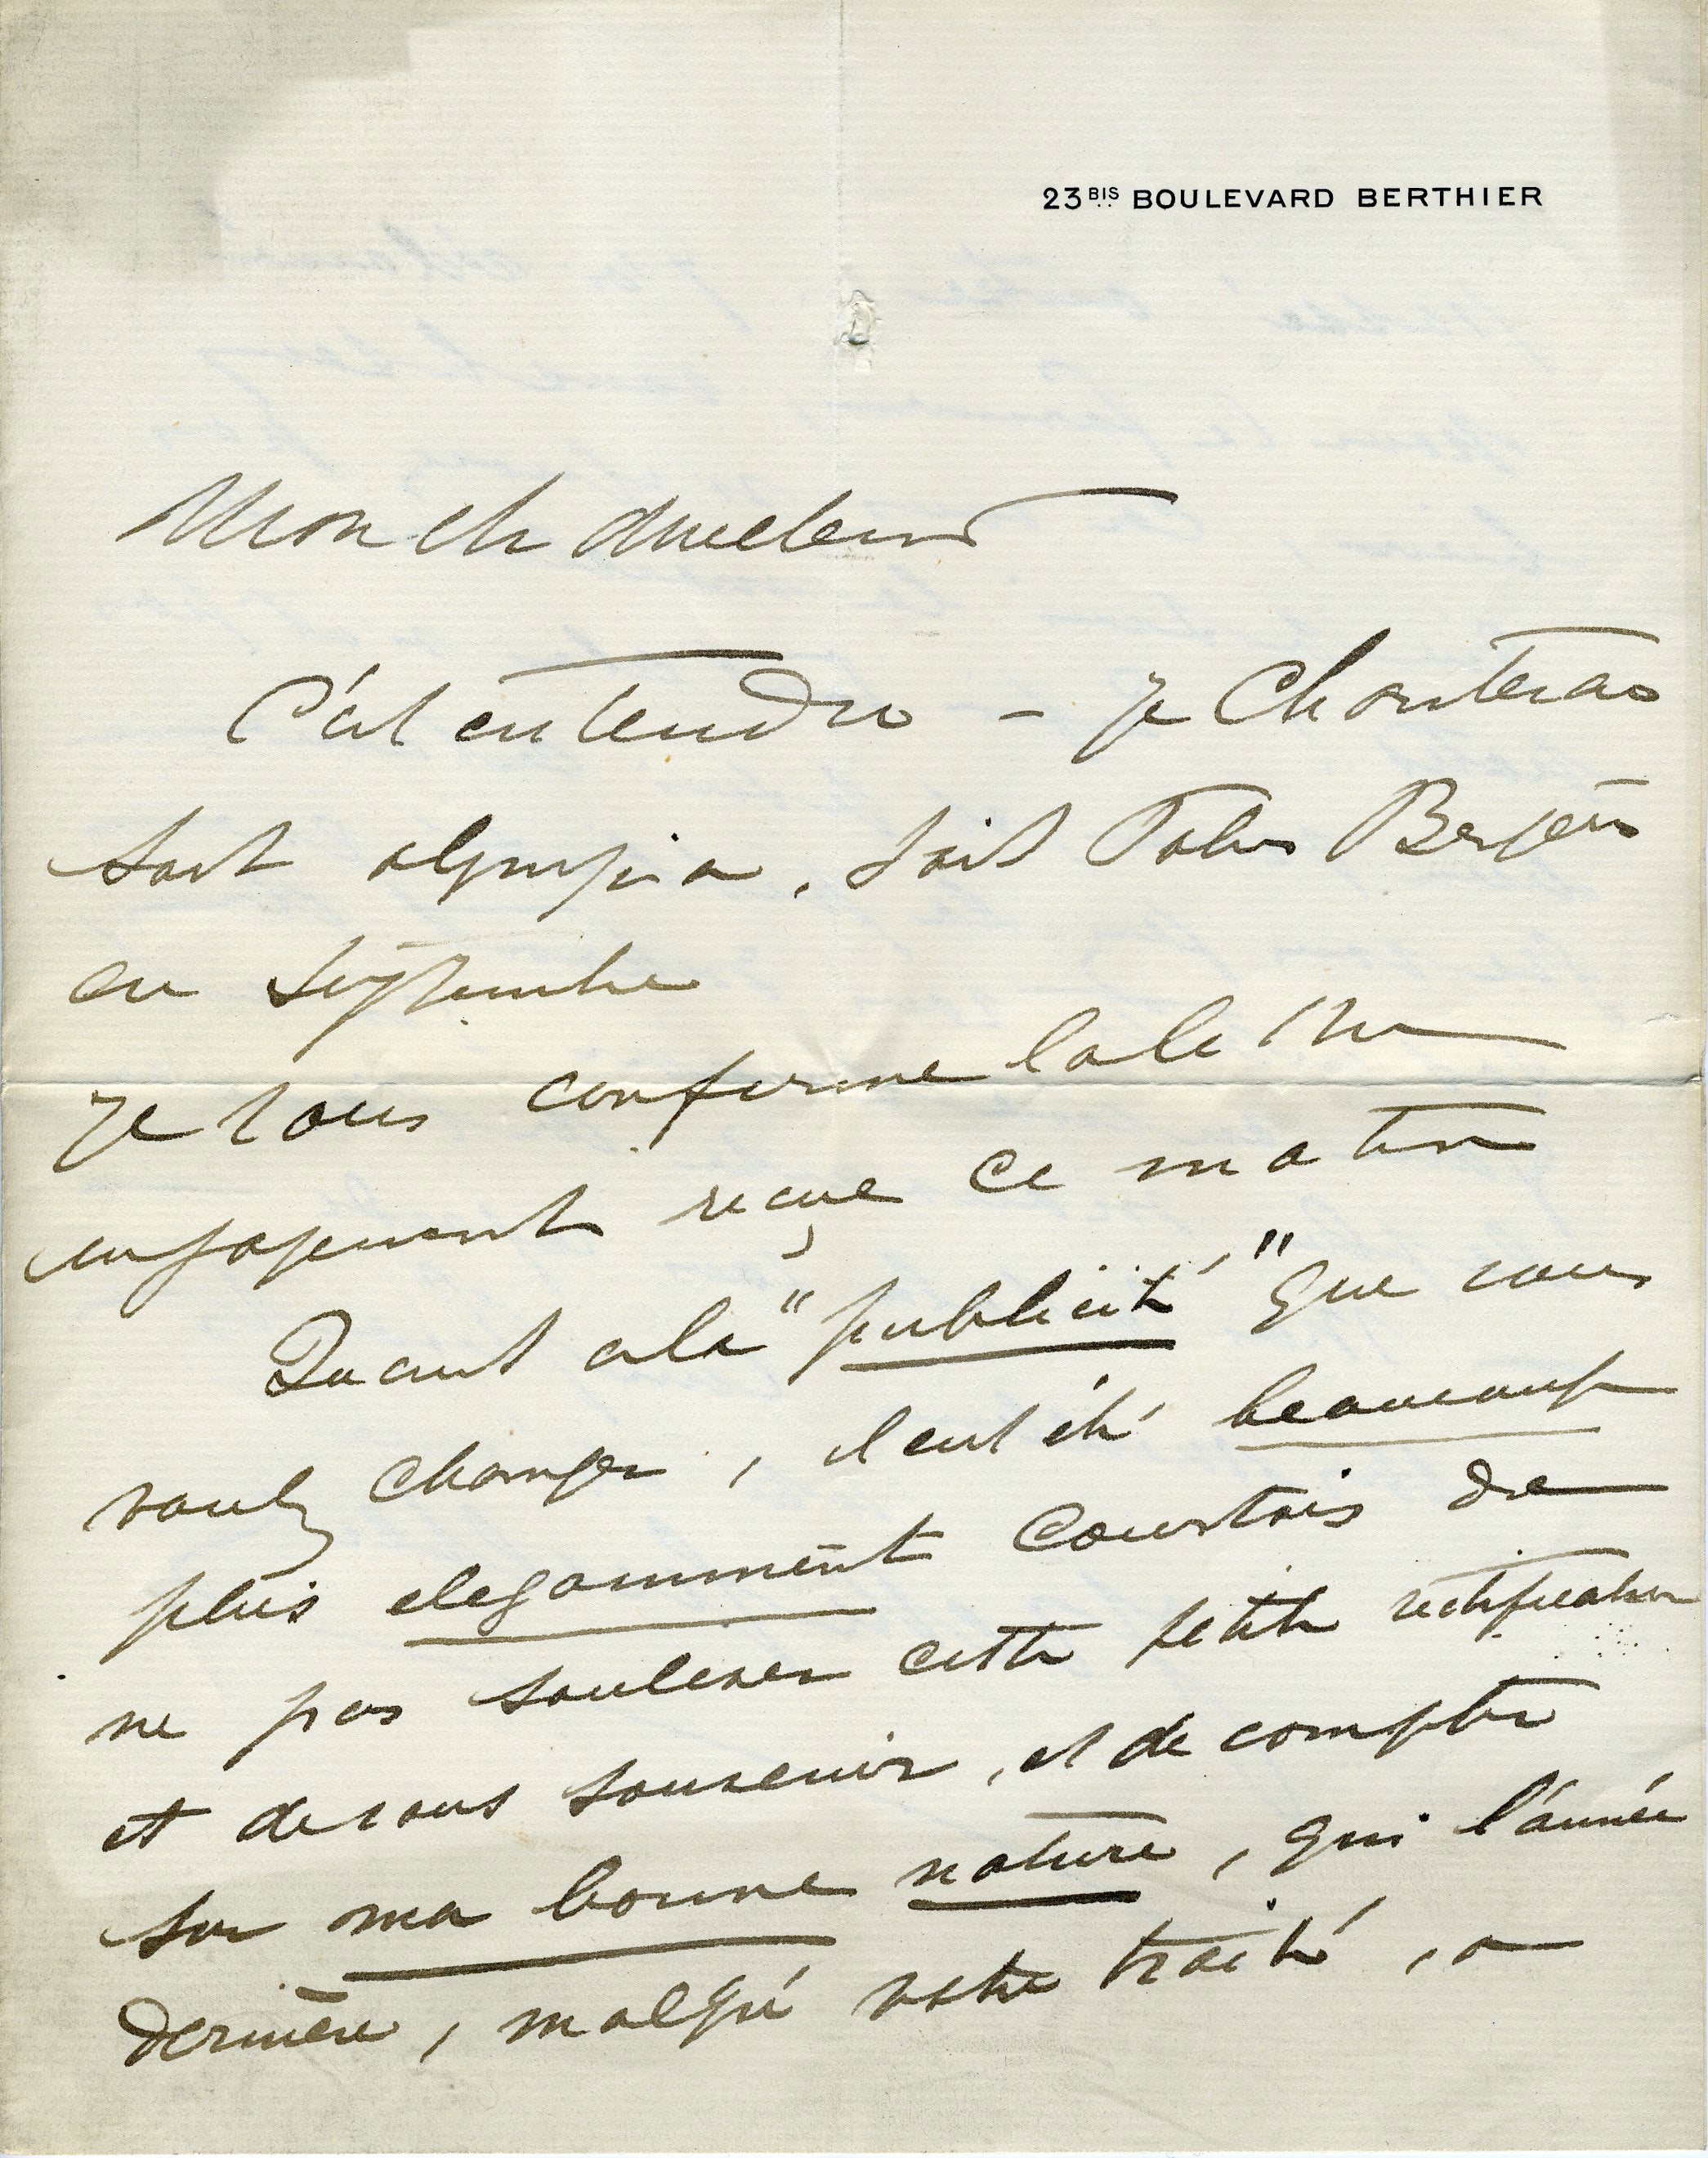 23BIS BOULEVARD BERTHIER
Mon ch directeur
C'est entendu - je chanterai
soit olympia, soit Folies Bergère
en Septembre
Je vous confirme la lettre
engagement reçue ce matin
Quant a la "publicité" que vous
voulez changer, il eut été beaucoup
plus elegamment courtois de
ne pas soulever cette petite rectification
et de vous souvenir, et de compter
sur ma bonne nature, qui l'année
dernière, malgré votre traité, a